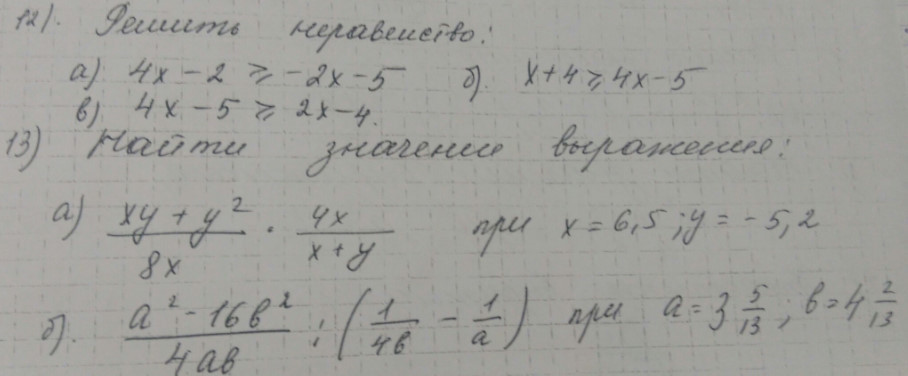 12). Решить неравенство:
а) 4x - 2 ≥ -2x - 5 б). x + 4 ≥ 4x - 5
в) 4x - 5 ≥ 2x - 4.
13) Найти значение выражения:
а) \frac{xy + y^2}{8x} \cdot \frac{4x}{x + y} при x = 6,5; y = -5,2
б). \frac{a^2 - 16b^2}{4ab} : (\frac{1}{4b} - \frac{1}{a}) при a = 3\frac{5}{13}; b = 4\frac{2}{13}